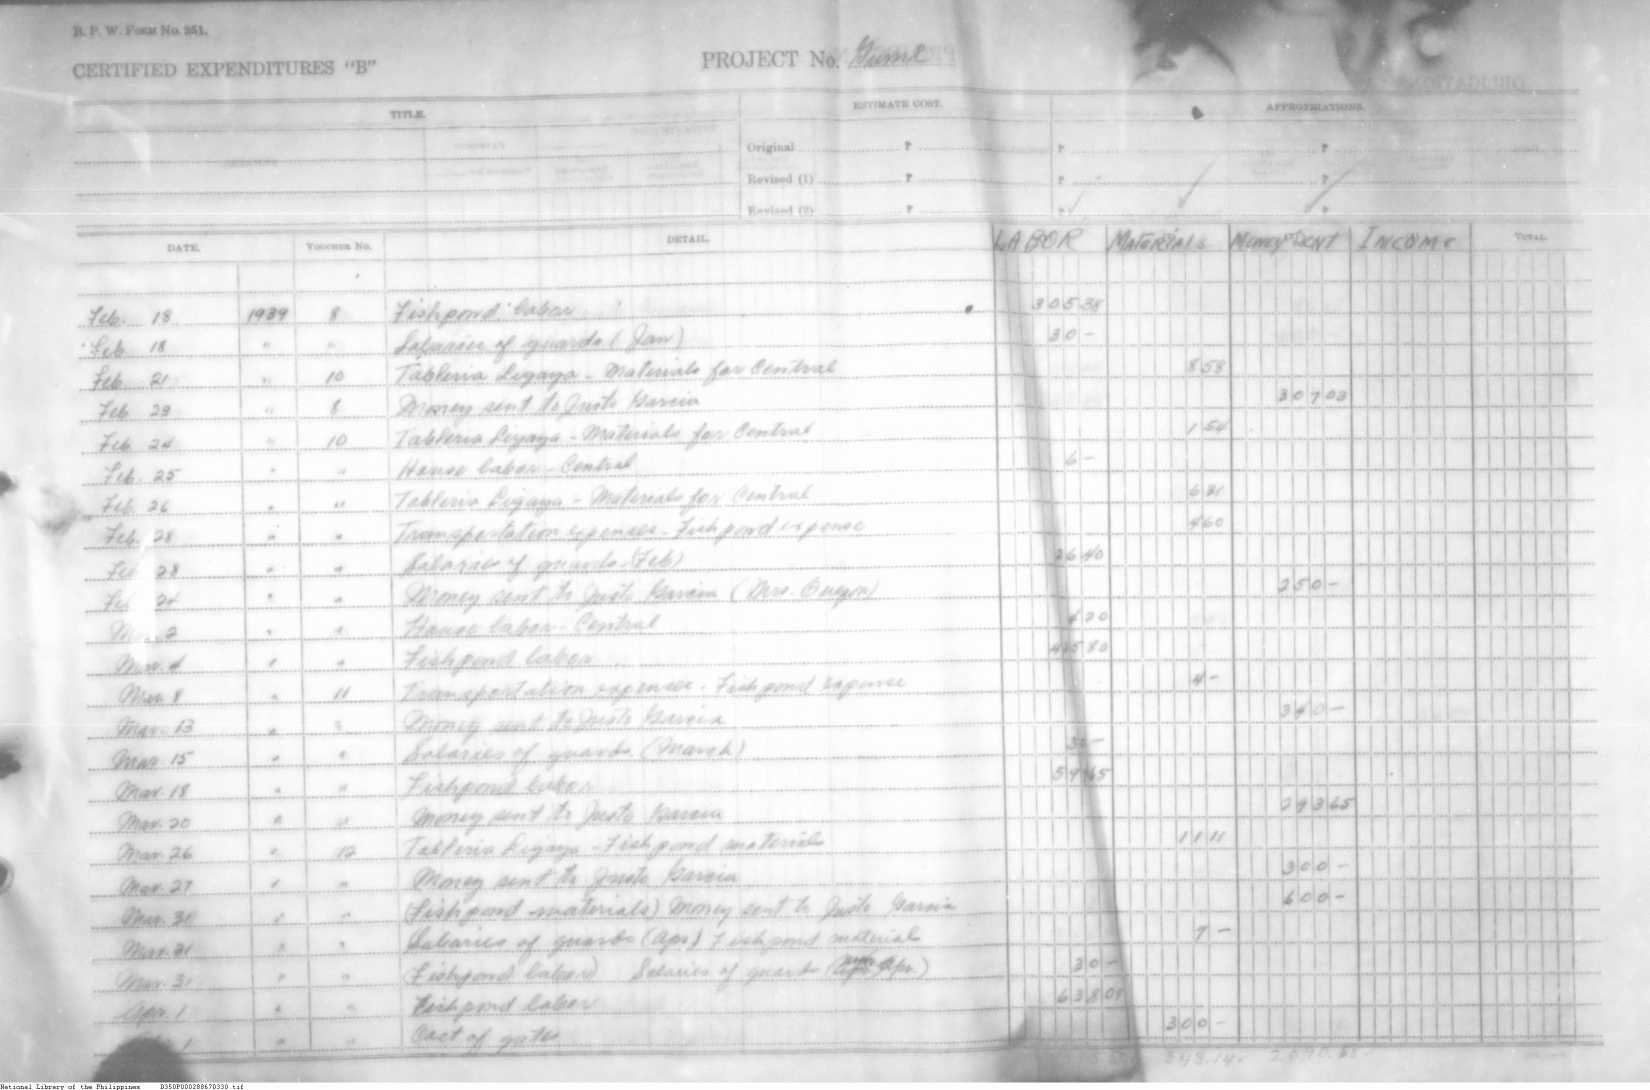 B. P. W. Form No. 251.
CERTIFIED EXPENDITURES "B"
PROJECT No.
TITLE.
ESTIMATE COST.
APPROPRIATIONS.
Original P P P
Revised (1) P P P
Revised (2) P P P
DATE. Voucher No. DETAIL. LABOR MATERIALS MONEY SENT INCOME TOTAL
Feb. 18 1939 8 Fishpond labor 305 38
Feb 18 " " Salaries of guards (Jan) 30 -
Feb 21 " 10 Tableria Ligaya - Materials for Central 8 58
Feb 23 " 8 Money sent to Justo Garcia 307 03
Feb 24 " 10 Tableria Ligaya - Materials for Central 1 54
Feb. 25 " " House labor - Central 6 -
Feb. 26 " " Tableria Ligaya - Materials for Central
Feb. 28 " " Transportation expenses - Fishpond expense 4 60
Feb 28 " " Salaries of guards (Feb) 26 40
" " Money sent to Justo Garcia (Mrs. 250 -
2 " " House labor - Central 4 20
Mar. 4 " " Fishpond labor
Mar. 8 " 11 Transportation expenses - Fishpond expense 4 -
Mar. 13 " " Money sent to Justo Garcia 340 -
Mar. 15 " " Salaries of guards (March)
Mar. 18 " " Fishpond labor
Mar. 20 " " Money sent to Justo Garcia 293 65
Mar. 26 " 12 Tableria Ligaya - Fishpond materials 11 11
Mar. 27 " " Money sent to Justo Garcia 300 -
Mar. 31 " " (Fishpond materials) Money sent to Justo Garcia 600 -
Mar. 31 " " Salaries of guards (Apr) Fishpond material 7 -
Mar. 31 " " (Fishpond labor) Salaries of guards Apr.) 30 -
Apr. 1 " " Fishpond labor
1 " " Cost of gates 300 -
343.14
National Library of the Philippines D350P000288670330.tif